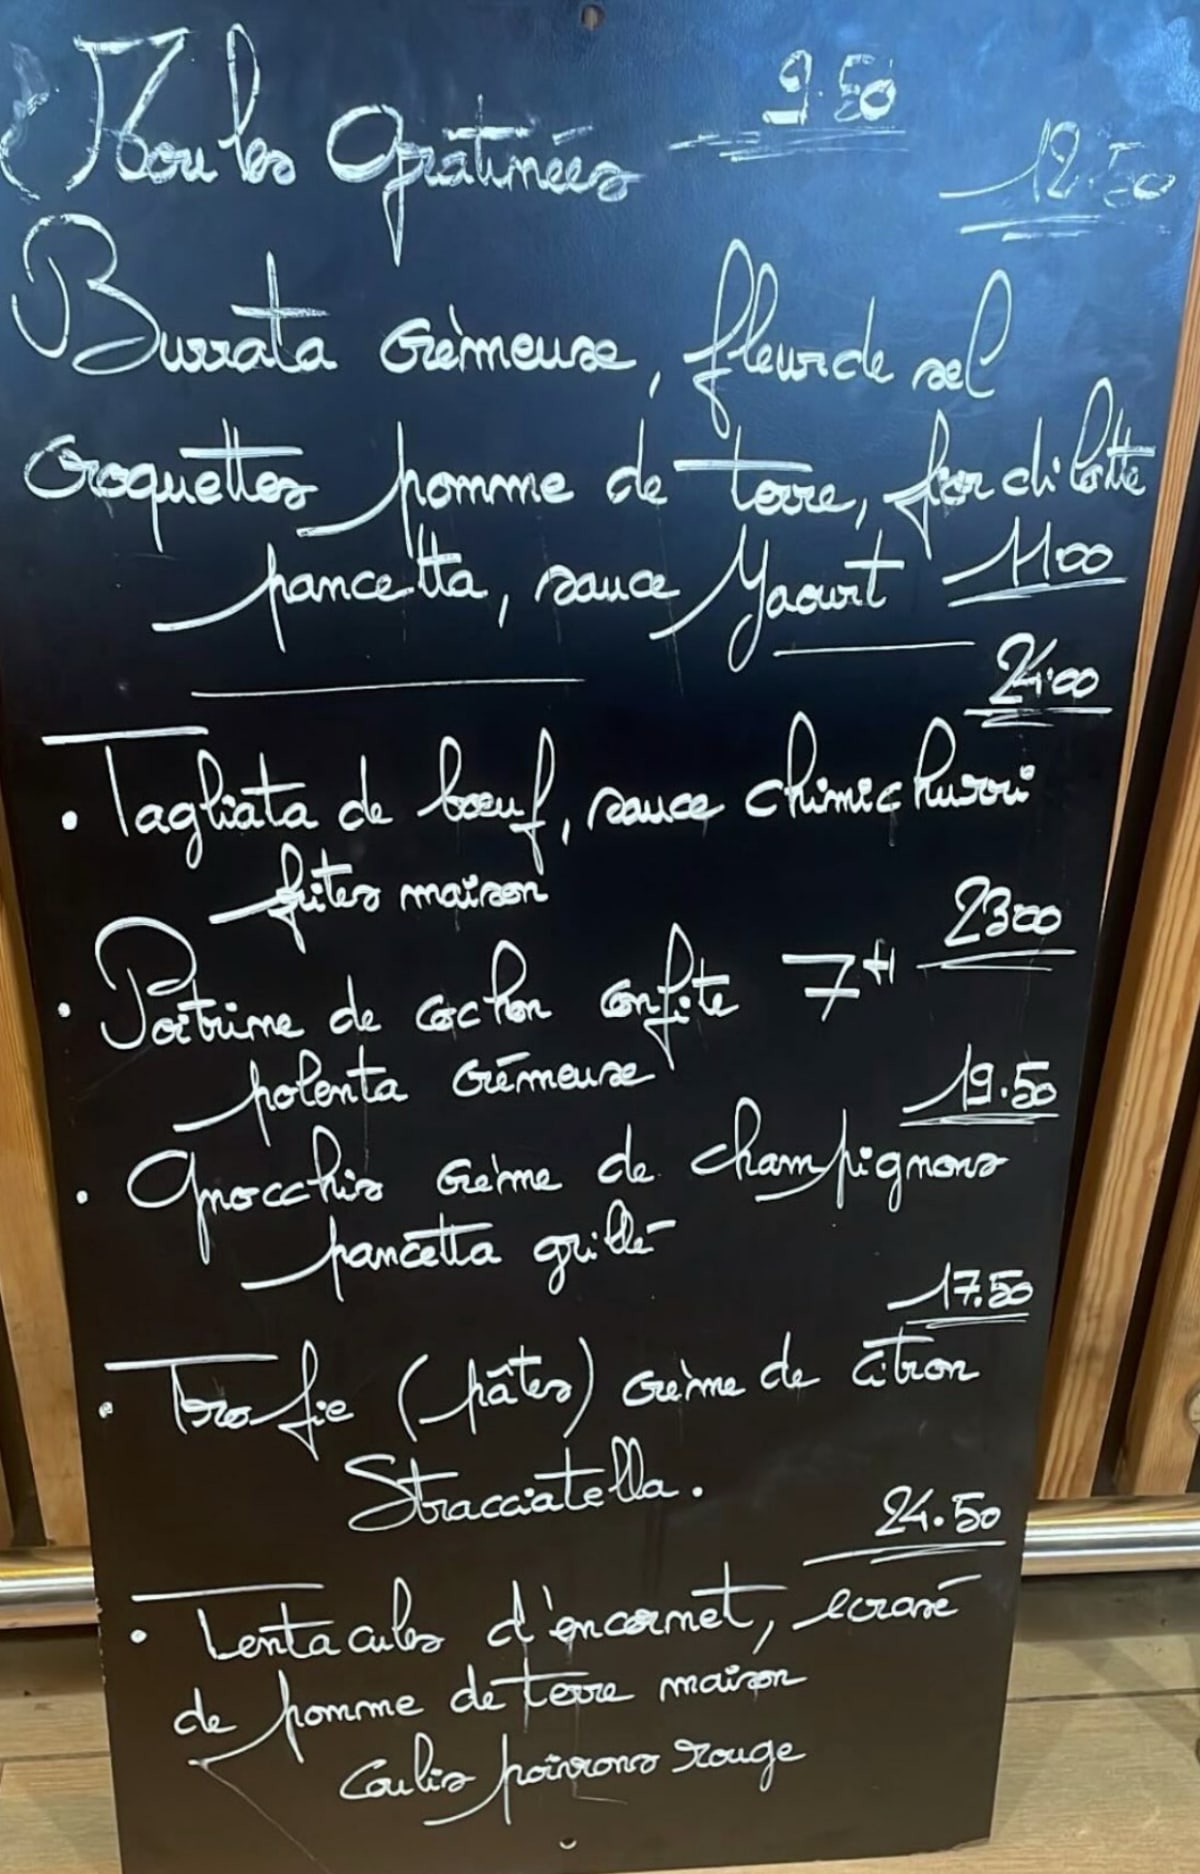 Moules Gratinées 9.50
12.50
Burrata crèmeuse, fleur de sel
Croquettes pomme de terre, fior di latte
pancetta, sauce Yaourt 11.00
24.00
• Tagliata de bœuf, sauce chimichurri
frites maison
23.00
• Poitrine de cochon confite 7H
polenta crémeuse
19.50
• Gnocchis crème de champignons
pancetta grillé
17.50
• Trofie (pâtes) crème de citron
Stracciatella.
24.50
• Tentacules d'encornet, ecrasé
de pomme de terre maison
Coulis poivrons rouge